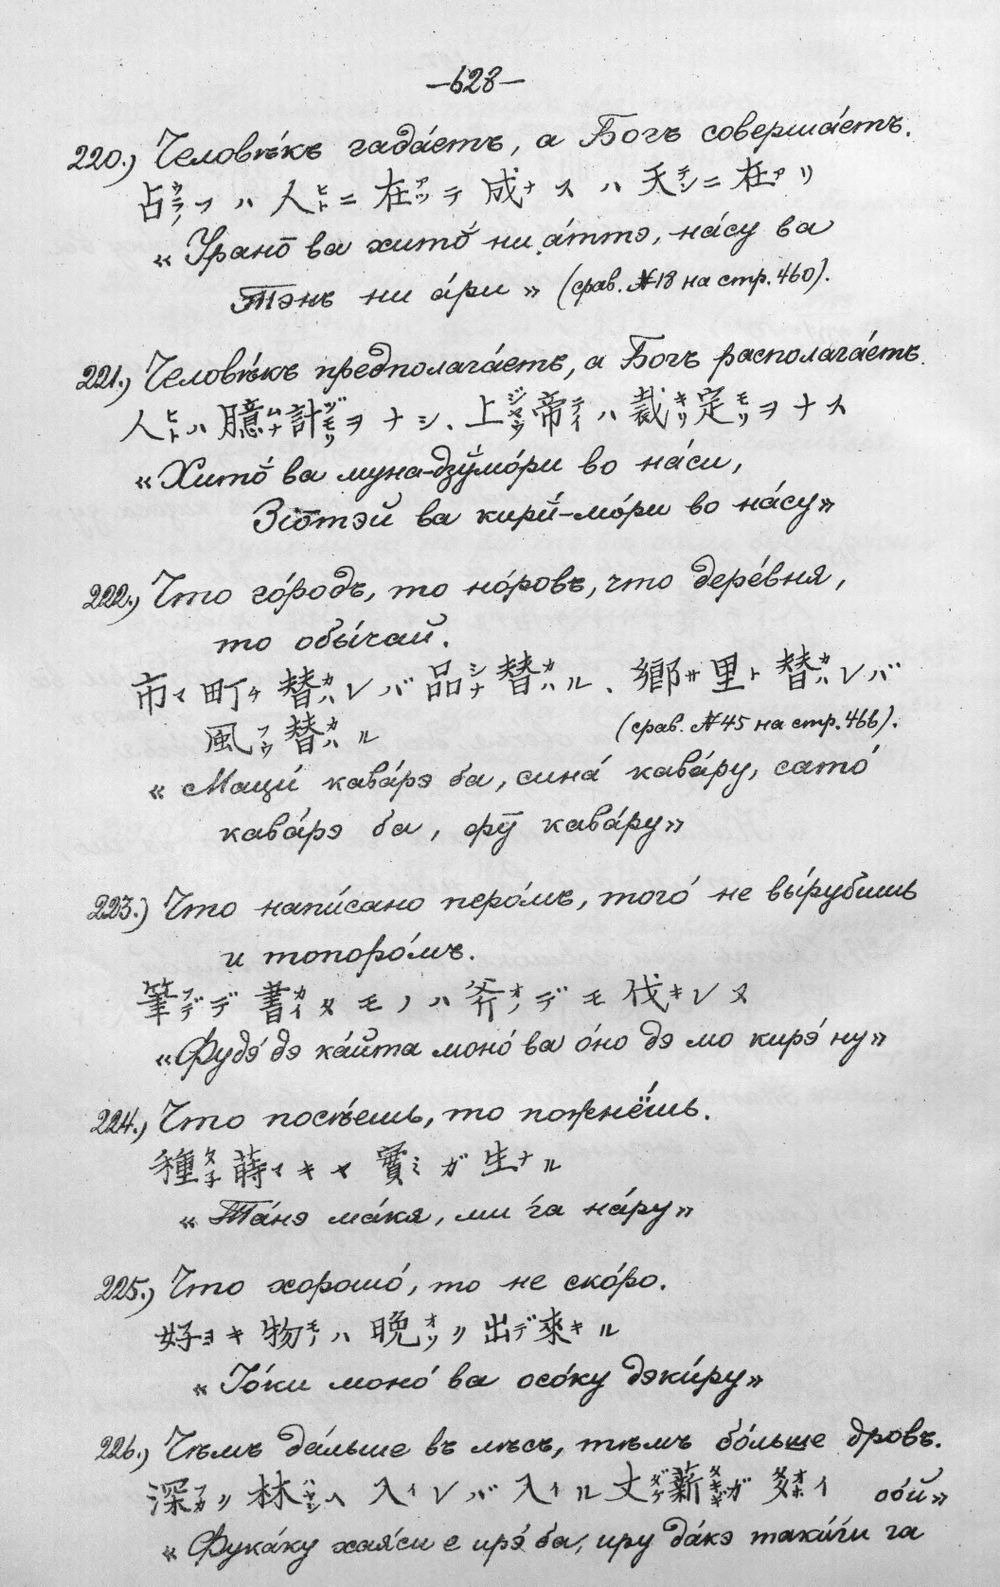 —628—
220.) Человѣ́къ гада́етъ, а Богъ соверша́етъ.
占ウラナフハ人ヒトニ在アツテ成ナスハ天テンニ在アリ
« Урано̄ ва хито̄́ ни а́ттэ, на́су ва
Тэнъ ни а́ри » (срав. №18 на стр. 460).
221.) Человѣ́къ предполага́етъ, а Богъ располага́етъ.
人ヒトハ臆ムナ計ヅモリヲナシ、上ジヤウ帝テイハ裁キリ定モリヲナス
« Хито̄́ ва муна-дзӯмо́ри во на́си,
Зіо̄тэй ва кири́-мо́ри во на́су»
222.) Что го́родъ, то но́ровъ, что дере́вня,
то обы́чай.
市マ町チ替カハレバ品シナ替カハル、郷サ里ト替カハレバ
風フウ替カハル (срав. №45 на стр. 466).
« Маци́ кава́рэ ба, сина́ кава́ру, сато́
кава́рэ ба, фӯ кава́ру»
223.) Что напи́сано перо́мъ, того́ не вы́рубишь
и топоро́мъ.
筆フデデ書カイタモノハ斧オノデモ伐キレヌ
«Фудэ́ дэ ка́йта моно́ ва о́но дэ мо кирэ́ ну»
224.) Что посѣ́ешь, то пожнё́шь.
種タ子蒔マキャ實ミガ生ナル
« Та́нэ ма́кя, ми га на́ру»
225.) Что хорошо́, то не ско́ро.
好ヨキ物モノハ晩オソク出デ來キル
« Іо́ки моно́ ва осо́ку дэки́ру»
226.) Чѣмъ да́льше въ лѣсъ, тѣмъ бо́льше дровъ.
深フカク林ハヤシヘ入イレバ入イル丈ダケ薪タキギガ多オホイ оо́й»
« Фука́ку хая́си е ирэ́ ба, иру да́кэ таки́ги га